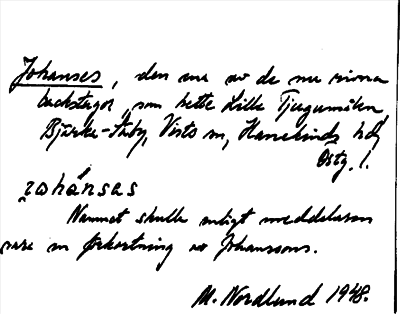 Johanses, den ena av de nu rivna
backstugor, som hette Lilla Tjugumåla,
Bjärka-Säby, Vists sn, Hanekinds hd,
Östg. l.
johánsas
Namnet skulle enligt meddelaren
vara en förkortning av Johanssons.
M. Nordlund 1948.